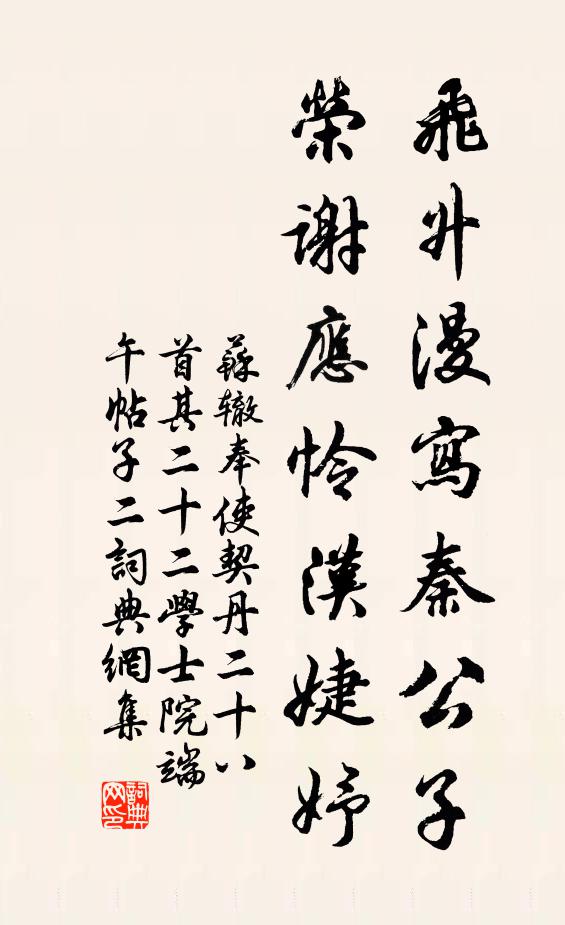 飛升漫寫秦公子
榮謝應怜漢婕妤
蘇辙奉使契丹二十八
首其二十二學士院端
午帖子二詞典網集
詞典
网印